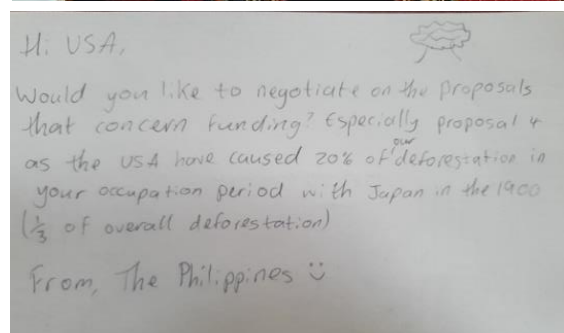 Hi USA,
Would you like to negotiate on the proposals
that concern funding? Especially proposal 4
as the USA have caused 20% of our deforestation in
your occupation period with Japan in the 1900
(1/3 of overall deforestation)
From, The Philippines ¨̮